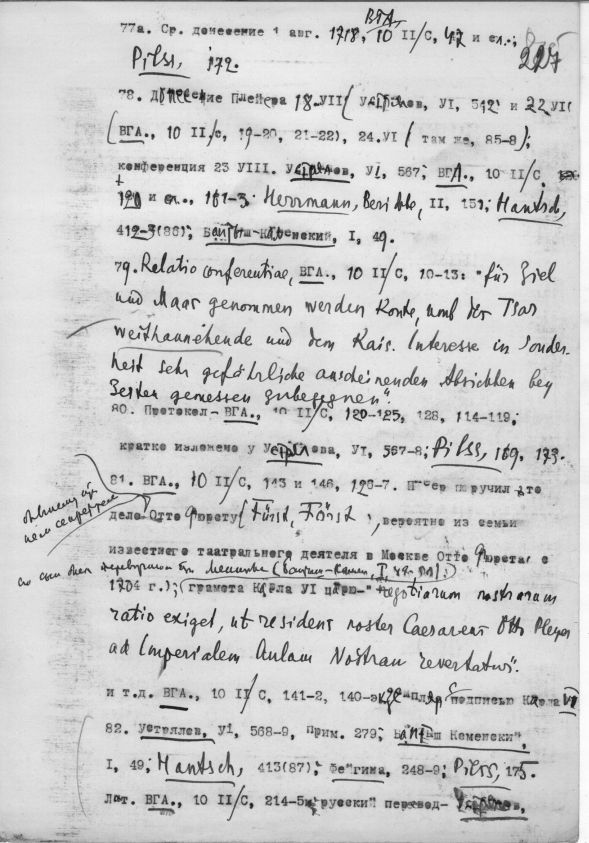 77а. Ср. донесение 1 авг. 1718, ВГА, 10 II/С, 47 и сл.;
227
Pilss, 172.
78. Донесение Плейера 18.VII (Устрялов, УІ, 542 и 22 УІІ
(ВГА., 10 II/С, 19-20, 21-22), 24.УІ (там же, 85-8);
конференция 23 УІІІ. Устрялов, УІ, 567; ВГА., 10 II/С
120 и сл., 161-3. Herrmann, Berichte, II, 151; Hantsch,
412-3(86); Бантыш-Каменский, I, 49.
79. Relatio conferentiae, ВГА., 10 II/С, 10-13: "für Ziel
und Maas genommen werden konte, und der Tsar
weithaussehende und dem Kais. Interesse in sonder-
heit sehr gefährliche anscheinenden Absichten bey
Zeiten gemessen zu begegnen".
80. Протокол- ВГА., 10 II/С, 120-125, 128, 114-119;
кратко изложено у Устрялова, УІ, 567-8; Pilss, 169, 173.
81. ВГА., 10 II/С, 143 и 146, 126-7. поручил это
дело Отто Фюрсту (Fürst, Först), вероятно из семьи
известного таатрального деятеля в Москве Отто Фюрста с
1704 г.); грамота Карла УІ царю-"negotiarum nostrarum
ratio exiget, ut residens noster Caesareus Otto Pleyer
ad Imperialem Aulam Nostram revertatur".
и т.д. ВГА., 10 II/С, 141-2, 140-экз. с подписью Карла VI
82. Устрялов, УІ, 568-9, Прим. 279; Бантыш Каменский,
I, 49; Hantsch, 413(87); Фейгина, 248-9; Pilss, 175.
Лат. ВГА., 10 II/С, 214-5 и русский перевод- Устрялов,